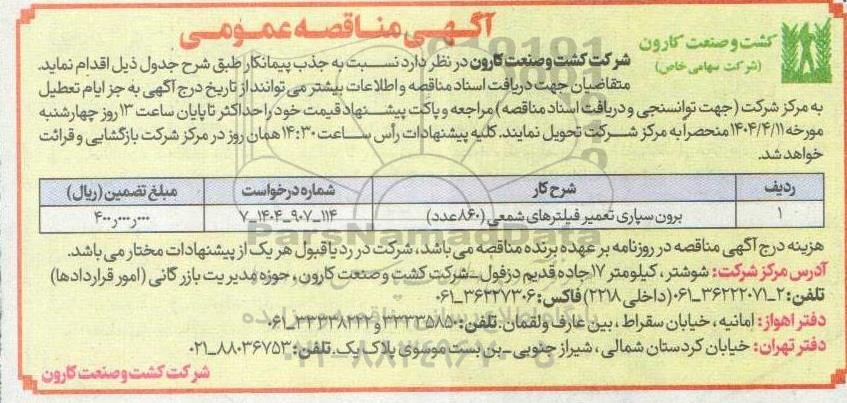 آگهی مناقصه عمومی
کشت و صنعت کارون
(شرکت سهامی خاص)
شرکت کشت و صنعت کارون در نظر دارد نسبت به جذب پیمانکار طبق شرح جدول ذیل اقدام نماید.
متقاضیان جهت دریافت اسناد مناقصه و اطلاعات بیشتر می توانند از تاریخ درج آگهی به جز ایام تعطیل
به مرکز شرکت (جهت توانسنجی و دریافت اسناد مناقصه) مراجعه و پاکت پیشنهاد قیمت خود را حداکثر تا پایان ساعت ۱۳ روز چهارشنبه
مورخه ۱۴۰۴/۴/۱۱ منحصراً به مرکز شرکت تحویل نمایند. کلیه پیشنهادات رأس ساعت ۱۴:۳۰ همان روز در مرکز شرکت بازگشایی و قرائت
خواهد شد.
ردیف شرح کار شماره درخواست مبلغ تضمین (ریال)
۱ برون سپاری تعمیر فیلترهای شمعی (۸۶۰ عدد) ۱۱۴_۹۰۷_۱۴۰۴_۷ ۴۰۰ر۰۰۰ر۰۰۰
هزینه درج آگهی مناقصه در روزنامه بر عهده برنده مناقصه می باشد، شرکت در رد یا قبول هر یک از پیشنهادات مختار می باشد.
آدرس مرکز شرکت: شوشتر، کیلومتر ۱۷ جاده قدیم دزفول _شرکت کشت و صنعت کارون، حوزه مدیریت بازرگانی (امور قراردادها)
تلفن: ۲_۳۶۲۲۲۰۷۱_۰۶۱ (داخلی ۲۲۱۸) فاکس: ۳۶۲۲۷۳۰۶_۰۶۱
دفتر اهواز: امانیه، خیابان سقراط، بین عارف و لقمان. تلفن: ۳۳۳۳۵۸۵۰ و ۳۳۳۳۸۲۲۲_۰۶۱
دفتر تهران: خیابان کردستان شمالی، شیراز جنوبی_بن بست موسوی پلاک یک. تلفن: ۸۸۰۳۶۷۵۳_۰۲۱
شرکت کشت و صنعت کارون
ParsNamadData
۰۲۱-۸۸۳۴۹۶۷۰-۵